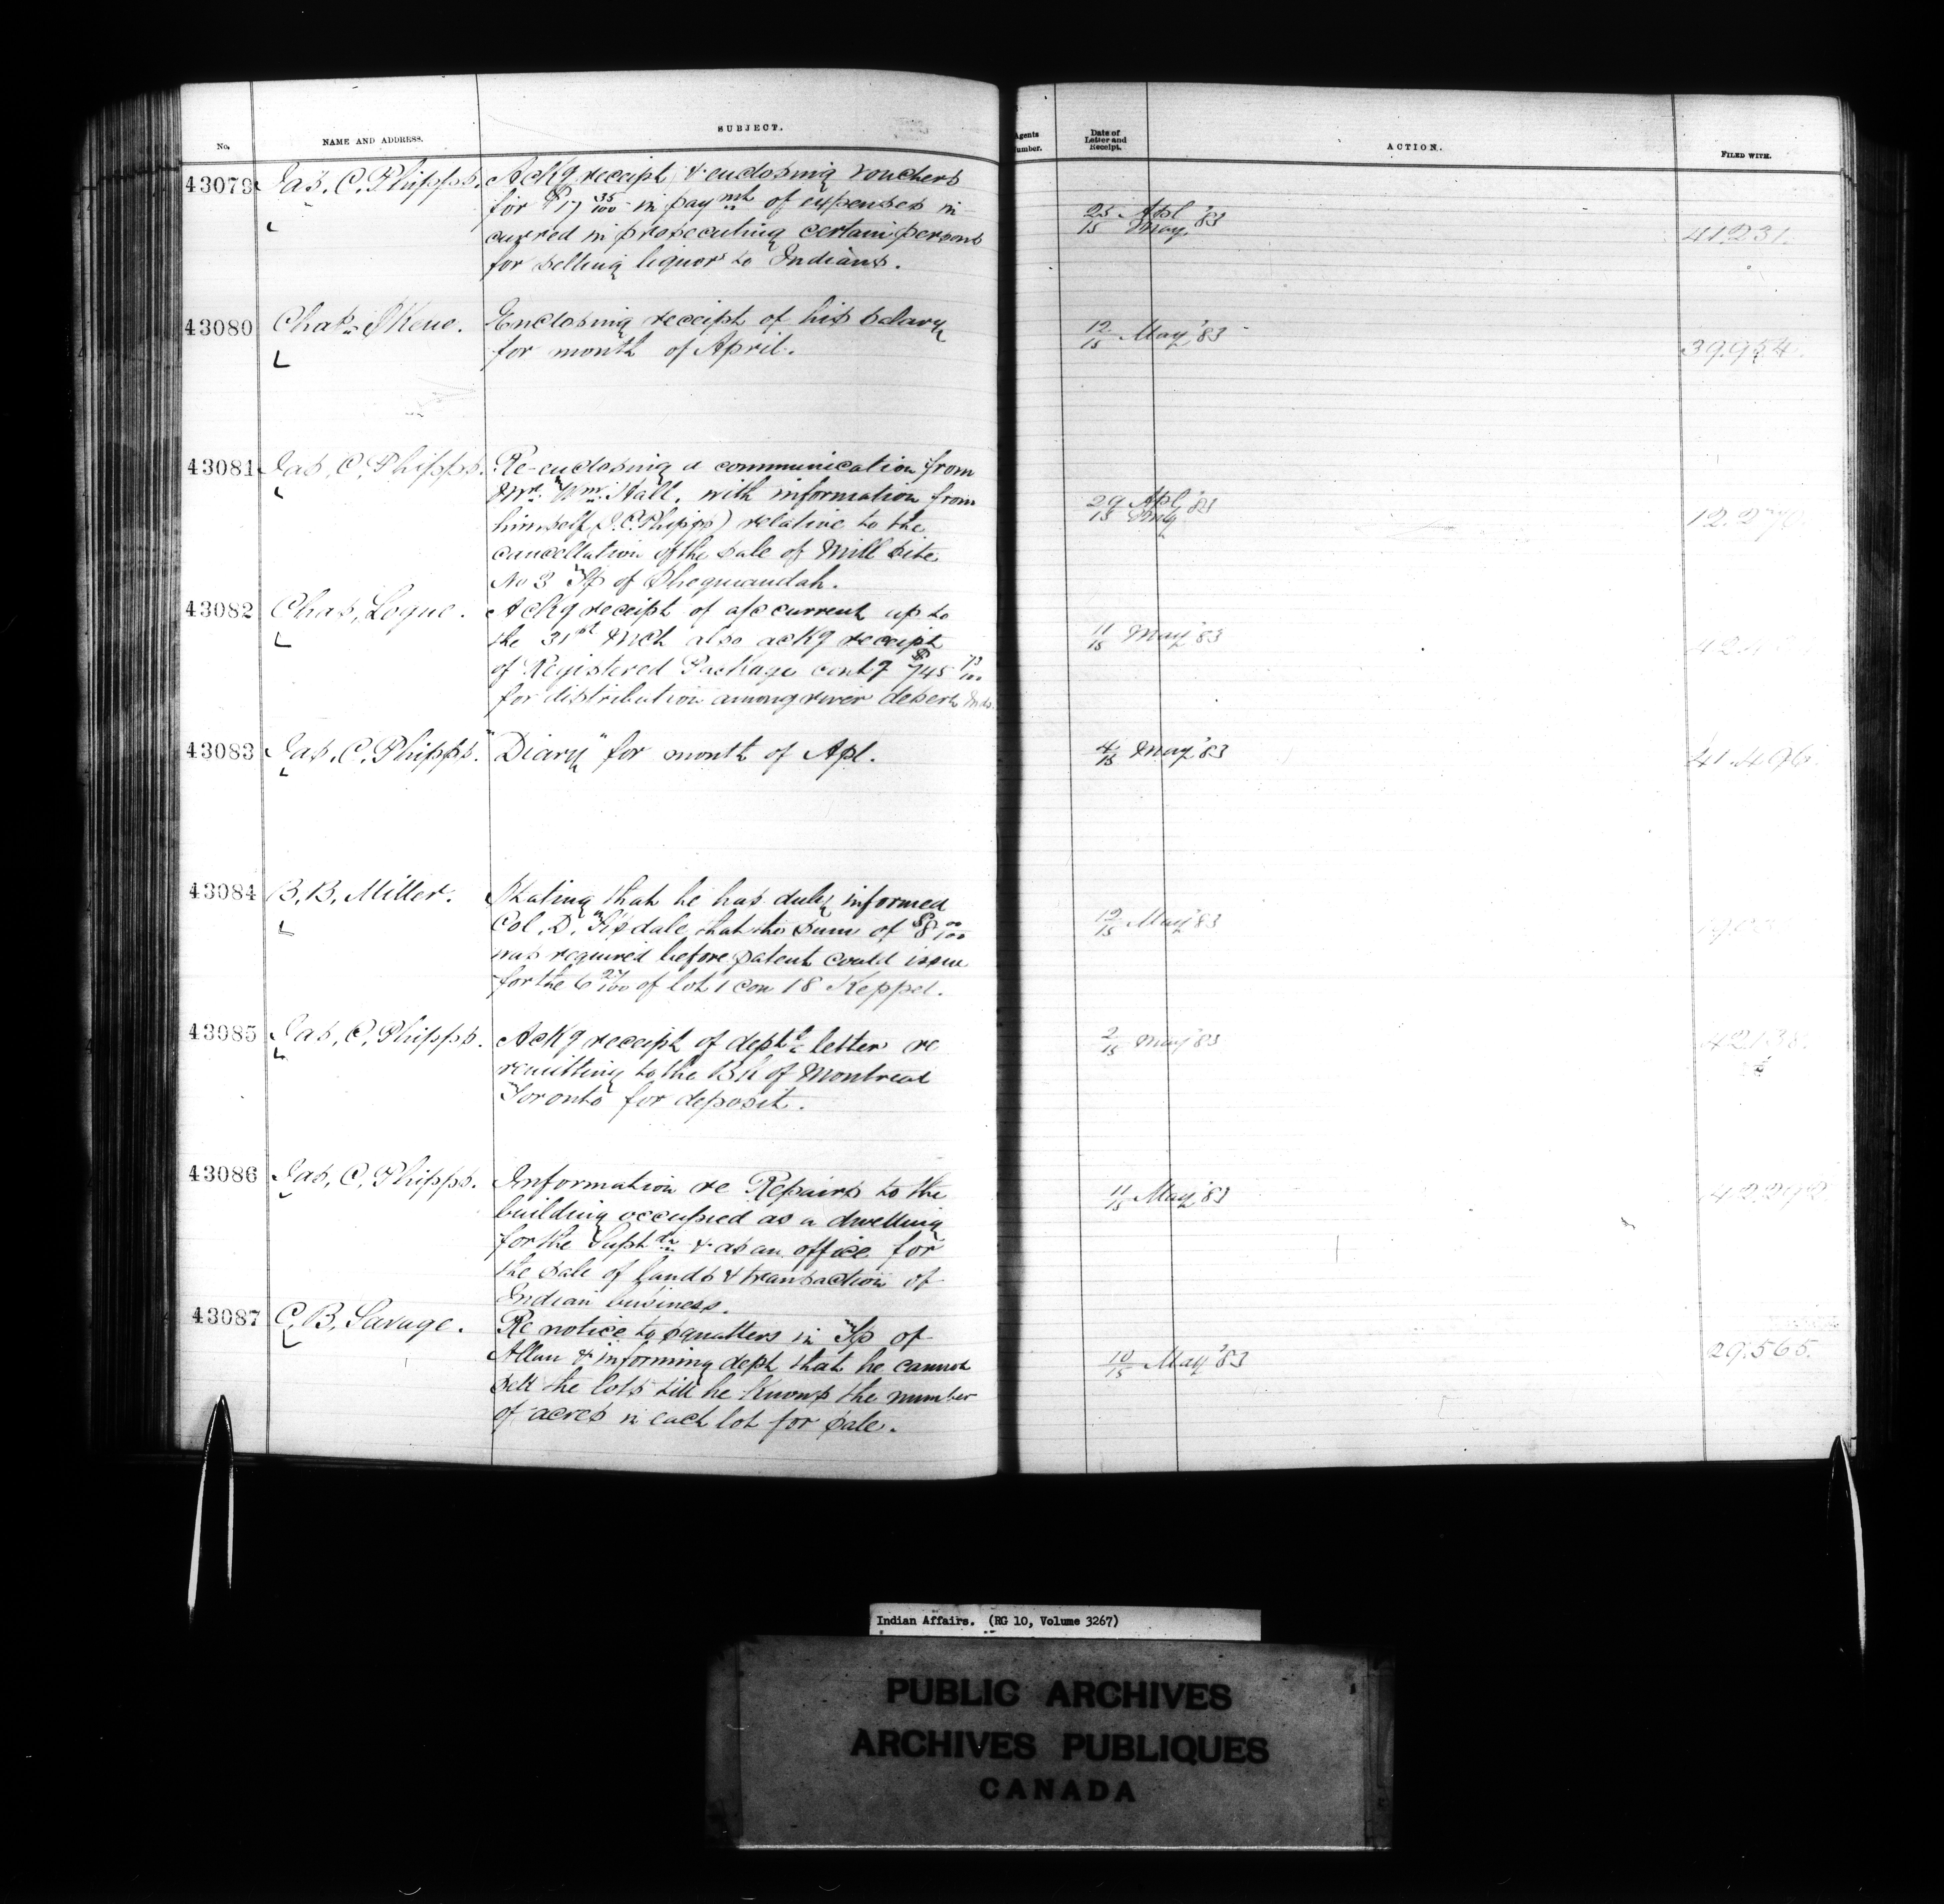 No.
NAME AND ADDRESS.
SUBJECT.
Agents
umber.
Date of
Letter and
Receipt.
ACTION.
FILED WITH.
43079
Jas. C. Phipps.
Ackg receipt & enclosing vouchers
for $17 35/100 in paymnt of expenses in
curred in prosecuting certain persons
for selling liquor to Indians.
25 Apl '83
15 May
41.231.
43080
Chas. Skene.
Enclosing receipt of his salary
for month of April.
12/15 May '83
39.954.
43081
Jas. C. Phipps.
Re-enclosing a communication from
Mr. Wm. Hall, with information from
himself (J.C. Phipps) relative to the
cancellation of the sale of Mill site
No 3 Tp of Sheguiandah.
29 Apl '83
15 May
43082
Chas. Logue.
Ackg receipt of a/c current up to
the 31st Mch also ackg receipt
of Registered Package contg $745
for distribution among river desert Inds.
11/15 May '83
43083
Jas. C. Phipps.
"Diary" for month of Apl.
4/15 May '83
41.496.
43084
B. B. Miller.
Stating that he has duly informed
Col. D. Tisdale that the sum of $8 00/100
was required before patent could issue
for the 6 27/100 of lot 1 con 18 Keppel.
12/15 May '83
43085
Jas. C. Phipps.
Ackg receipt of deptl letter re
remitting to the Bk of Montreal
Toronto for deposit.
2/15 May '83
42138.
43086
Jas. C. Phipps.
Information re Repairs to the
building occupied as a dwelling
for the Supt & as an office for
the sale of lands & transaction of
Indian business.
11/15 May '83
42292
43087
C. B. Savage.
Re notice to squatters in Tp of
Allan & informing dept that he cannot
sell the lots till he knows the number
of acres in each lot for sale.
10/15 May '83
29.565.
Indian Affairs. (RG 10, Volume 3267)
PUBLIC ARCHIVES
ARCHIVES PUBLIQUES
CANADA